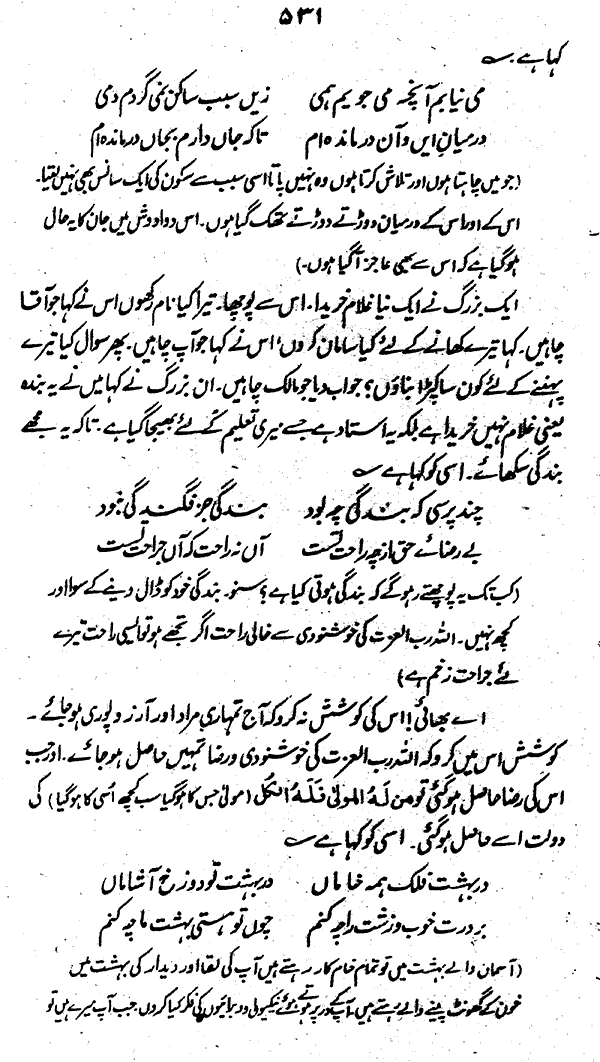 ۵۳۱
کہا ہے۔
می نیابم آنچہ می جویم ہمی زیں سبب ساکن نمی گردم دمی
درمیانِ این و آن درماندہ ام تا کہ جاں دارم بجاں درماندہ ام
(جو میں چاہتا ہوں اور تلاش کرتا ہوں وہ نہیں پاتا اسی سبب سے سکون کی ایک سانس بھی نہیں لیتا۔
اس کے اور اس کے درمیان دوڑتے دوڑتے تھک گیا ہوں۔ اس دوادوش میں جان کا یہ حال
ہو گیا ہے کہ اس سے بھی عاجز آ گیا ہوں۔)
ایک بزرگ نے ایک نیا غلام خریدا۔ اس سے پوچھا۔ تیرا کیا نام رکھوں اس نے کہا جو آقا
چاہیں۔ کہا تیرے کھانے کے لئے کیا سامان کروں، اس نے کہا جو آپ چاہیں۔ پھر سوال کیا تیرے
پہننے کے لئے کون سا کپڑا بناؤں؟ جواب دیا جو مالک چاہیں۔ ان بزرگ نے کہا میں نے یہ بندہ
یعنی غلام نہیں خریدا ہے بلکہ یہ استاد ہے جسے میری تعلیم کے لئے بھیجا گیا ہے۔ تاکہ یہ مجھے
بندگی سکھائے۔ اسی کو کہا ہے
چند پرسی کہ بندگی چہ بود بندگی جز فگندگی نبود
بے رضائے حق از چہ راحت تست آں نہ راحت کہ آں جراحت تست
(کب تک یہ پوچھتے رہو گے کہ بندگی ہوتی کیا ہے؟ سنو۔ بندگی خود کو ڈال دینے کے سوا اور
کچھ نہیں۔ اللہ رب العزت کی خوشنودی سے خالی راحت اگر تجھے ہو تو ایسی راحت تیرے
لئے جراحت زخم ہے)
اے بھائی! اس کی کوشش نہ کرو کہ آج تمہاری مراد اور آرزو پوری ہو جائے۔
کوشش اس میں کرو کہ اللہ رب العزت کی خوشنودی و رضا تمہیں حاصل ہو جائے۔ اور جب
اس کی رضا حاصل ہو گئی تو من لَهُ المولیٰ فَلَهُ الكُل (مولیٰ جس کا ہو گیا سب کچھ اُسی کا ہو گیا) کی
دولت اسے حاصل ہو گئی۔ اسی کو کہا ہے
در بہشت فلک ہمہ خاماں در بہشت تو دوزخ آشاماں
بر درت خوب و زشت را چہ کنم چوں تو ہستی بہشت ما چہ کنم
(آسمان والے بہشت میں تو تمام خام کار رہتے ہیں آپ کی لقا اور دیدار کی بہشت میں
خون کے گھونٹ پینے والے رہتے ہیں۔ آپ کے در پر ہوتے ہوئے نیکیوں و برائیوں کی فکر کیا کروں جب آپ میرے ہیں تو